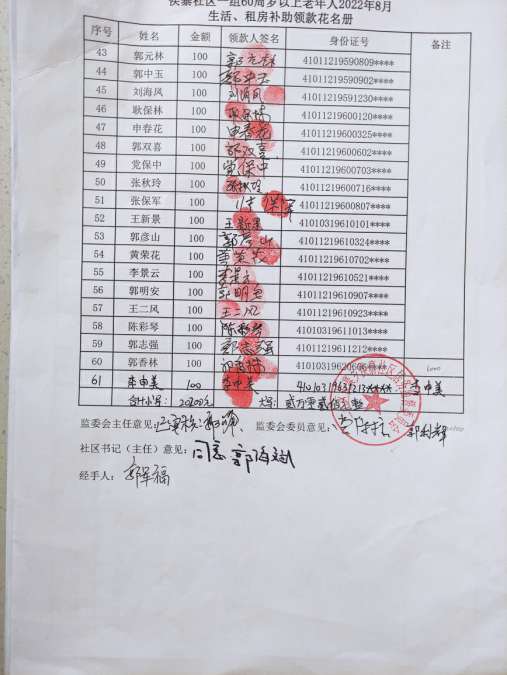 侯寨社区一组60周岁以上老年人2022年8月
生活、租房补助领款花名册
序号 姓名 金额 领款人签名 身份证号 备注
43 郭元林 100 郭元林 41011219590809****
44 郭中玉 100 郭中玉 41011219590902****
45 刘海凤 100 刘海凤 41011219591230****
46 耿保林 100 41011219600120****
47 申春花 100 申春花 41011219600325****
48 郭双喜 100 郭双喜 41011219600602****
49 党保中 100 党保中 41011219600703****
50 张秋玲 100 41011219600716****
51 张保军 100 保军 41011219600807****
52 王新景 100 王新景 41010319610101****
53 郭彦山 100 郭彦山 41011219610324****
54 黄荣花 100 黄荣花 41011219610702****
55 李景云 100 李景云 41011219610521****
56 郭明安 100 郭明安 41011219610907****
57 王二风 100 王二风 41011219610923****
58 陈彩琴 100 陈彩琴 41010319611013****
59 郭志强 100 郭志强 41011219611212****
60 郭香林 100 41010319620606****
61 李申美 100 李申美 41010319631213**** 李申美
合计小写: 20200元 大写: 贰万零贰佰元整
监委会主任意见: 监委会委员意见: 郭利辉
社区书记(主任)意见: 同意 郭海斌
经手人: 郭军福